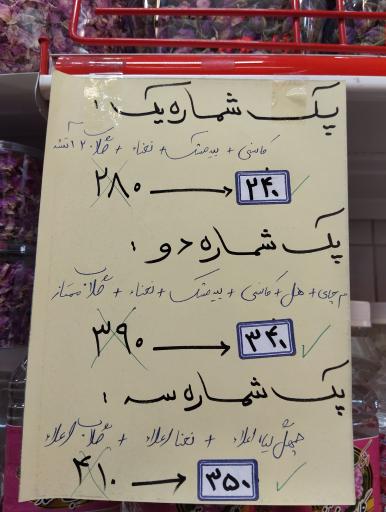 پک شماره یک :
کاسنی + بیدمشک + نعناء + گلاب ۲۰ آتشه
۲۸۰ → ۲۴۰ ✓
پک شماره دو :
هل + کاسنی + بیدمشک + نعناء + گلاب ممتاز
۳۹۰ → ۳۴۰ ✓
پک شماره سه :
چهل گیاه اعلاء + نعنا اعلاء + گلاب اعلاء
۴۱۰ → ۳۵۰ ✓